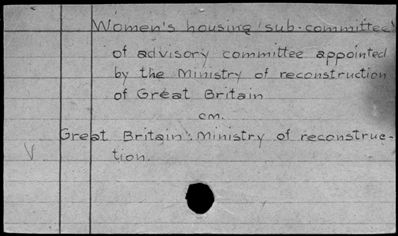 Women's housing sub-committee
of advisory committee appointed
by the Ministry of reconstruction
of Great Britain
cm.
Great Britain. Ministry of reconstruc-
tion.